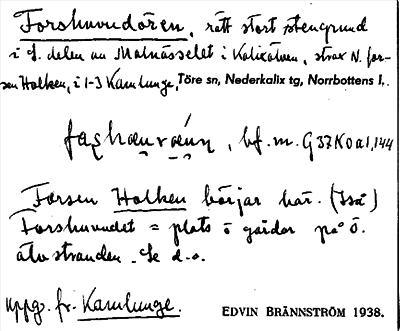 Forshuvudören, rätt stort stengrund
i S. delen av Malnässelet i Kalixälven, strax N. for-
sen Holken, i 1-3 Kamlunge, Töre sn, Nederkalix tg, Norrbottens l.
bf. m. G 37 K 0 a 1, 144
Forsen Holken börjar här. (Isså)
Forshuvudet = plats ö gårdar på Ö.
älvstranden. Se d.o.
Uppg. fr. Kamlunge.
EDVIN BRÄNNSTRÖM 1938.